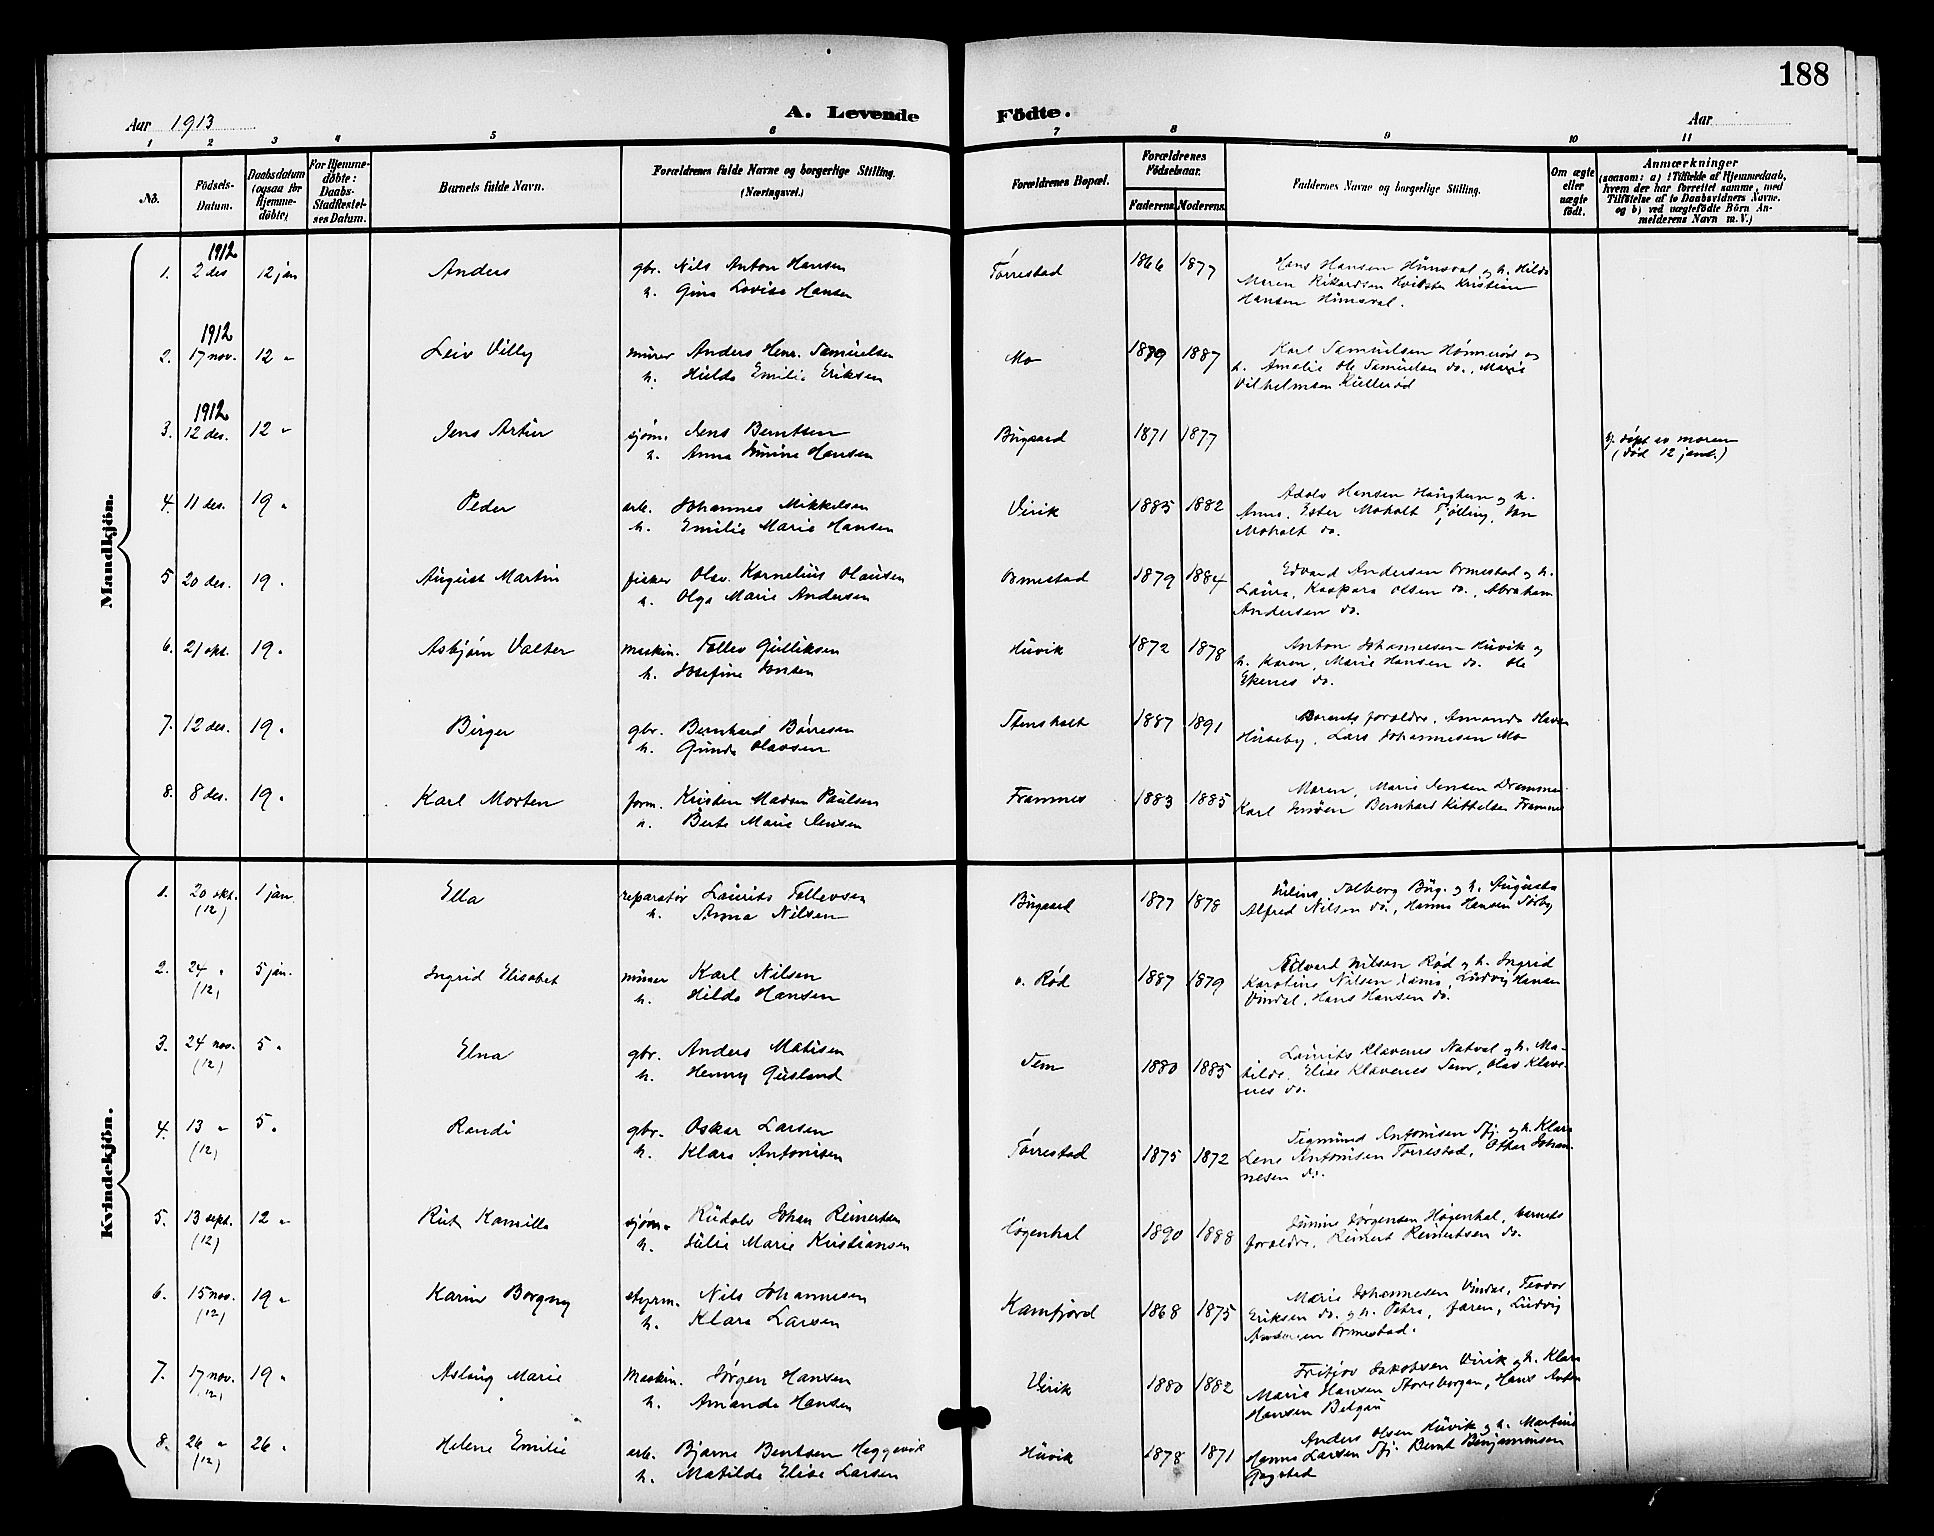 188
Aar 1913
A. Levende Födte.
Aar
1 2 3 4 5 6 7 8 9 10 11
No.
Födsels-Datum.
Daabsdatum (ogsaa for Hjemme-döbte)
For Hjemme-döbte: Daabs-Stadfæstel-ses Datum.
Barnets fulde Navn.
Forældrenes fulde Navne og borgerlige Stilling. (Næringsvei.)
Forældrenes Bopæl.
Forældrenes Födselsaar.
Faderens Moderens.
Faddernes Navne og borgerlige Stilling.
Om ægte eller uægte født.
Anmærkninger
(saasom: a) i Tilfælde af Hjemmedaab,
hvem der har forrettet samme, med
Tilföielse af to Daabsvidners Navne.
og b) ved uægtefödte Börn An-
melderens Navn m. V.)
Mandkjön.
1. 1912 2 des 12 jan Anders gbr. Nils Anton Hansen Torrestad 1866 1877 Hans Hansen Himsval og h. Hilda
h. Gina Lovise Hansen Maren Rikardsen Kristian
Hansen Himsval.
2. 1912 17 nov. 12 " Leiv Villy murer Anders Henr. Samuelsen Mo 1887 Karl Samuelsen og
h. Hulda Emilie Eriksen h. Amalie Ole Samuelsen do., Marie
Vilhelmsen
3. 1912 12 des. 12 " Jens Artur sjøm. Jens Berntsen Bugaard 1871 1877 hj. døpt av moren
h. Anna Hansen (død 12 jan.)
4. 11 des. 19 " Peder arb. Johannes Mikkelsen Virik 1885 1882 Adolv Hansen Haughem og h.
h. Emilie Marie Hansen Anna, Ester Moholt Tjølling,
Moholt do.
5 20 des. 19 " August Martin fisker Olav Kornelius Olausen Ormestad 1879 1884 Edvard Andersen Ormestad og h.
h. Olga Marie Andersen Laura, Kaspara Olsen do., Abraham
Andersen do.
6. 21 okt. 19 " Asbjørn Valter maskin. Tollev Gulliksen Huvik 1872 1878 Anton Johannesen Huvik og
h. Josefine Jonsen h. Karen, Marie Hansen do. Ole
Ekenes do.
7. 12 des. 19 " Birger gbr. Bernhard Børresen Stensholt 1887 1891 Barnets foreldre, Amanda
h. Gunda Olavsen Huseby, Lars Johannesen Mo
8. 8 des. 19 " Karl Morten form. Kristen Madsen Paulsen Framnes 1883 1885 Maren, Marie Jensen Drammen
h. Berte Marie Jensen Karl Bernhard Kittelsen Framnes
Kvindekjön.
1. 20 okt. (12) 1 jan Ella reparatør Laurits Tollevsen Bugaard 1877 1878 Julius Solberg Bug. og h. Augusta
h. Anna Nilsen Alfred Nilsen do., Hanna Hansen
2. 24 " (12) 5 jan. Ingrid Elisabet murer Karl Nilsen ø. Rød 1887 1879 Edvard Nilsen Rød og h. Ingrid
h. Hilda Hansen Karoline Nilsen Ludvig Hansen
Vindal, Hans Hansen do.
3. 24 nov. (12) 5 " Elna gbr. Anders Matisen Tem 1880 1885 Laurits Klavenes Natval og h. Ma-
h. Henny Gusland tilde, Elise Klavenes Tem, Olav Klave-
nes do.
4. 13 " (12) 5 " Randi gbr. Oskar Larsen Torrestad 1875 1872 Sigmund Antonisen Sfj. og h. Klara
h. Klara Antonisen Lene Antonisen Torrestad, Othar Johan-
nesen do.
5. 13 sept. (12) 12 " Rut Kamilla sjøm. Rudolv Johan Reinertsen Høgenhal 1890 1888 Jørgensen Høgenhal, barnets
h. Julie Marie Kristiansen foreldre, Reinert Reinertsen do.
6. 15 nov. (12) 19 " Karin Borgny styrm. Nils Johannesen Kamfjord 1868 1875 Marie Johannesen Vindal, Teodor
h. Klara Larsen Eriksen do. og h. Petra, faren, Ludvig
Andersen Ormestad.
7. 17 nov. (12) 19 " Aslaug Marie Maskin. Jørgen Hansen Virik 1880 1882 Fritjov Jakobsen Virik og h. Klara
h. Amanda Hansen Maria Hansen Hans Anton
Hansen Belgau
8. 26 " (12) 26 " Helene Emilie arb. Bjarne Bentsen Heggevik Huvik 1878 1871 Anders Olsen Huvik og h. Martine
h. Matilde Elise Larsen Hanna Larsen Sfj. Bernt Benjaminsen
Gogstad